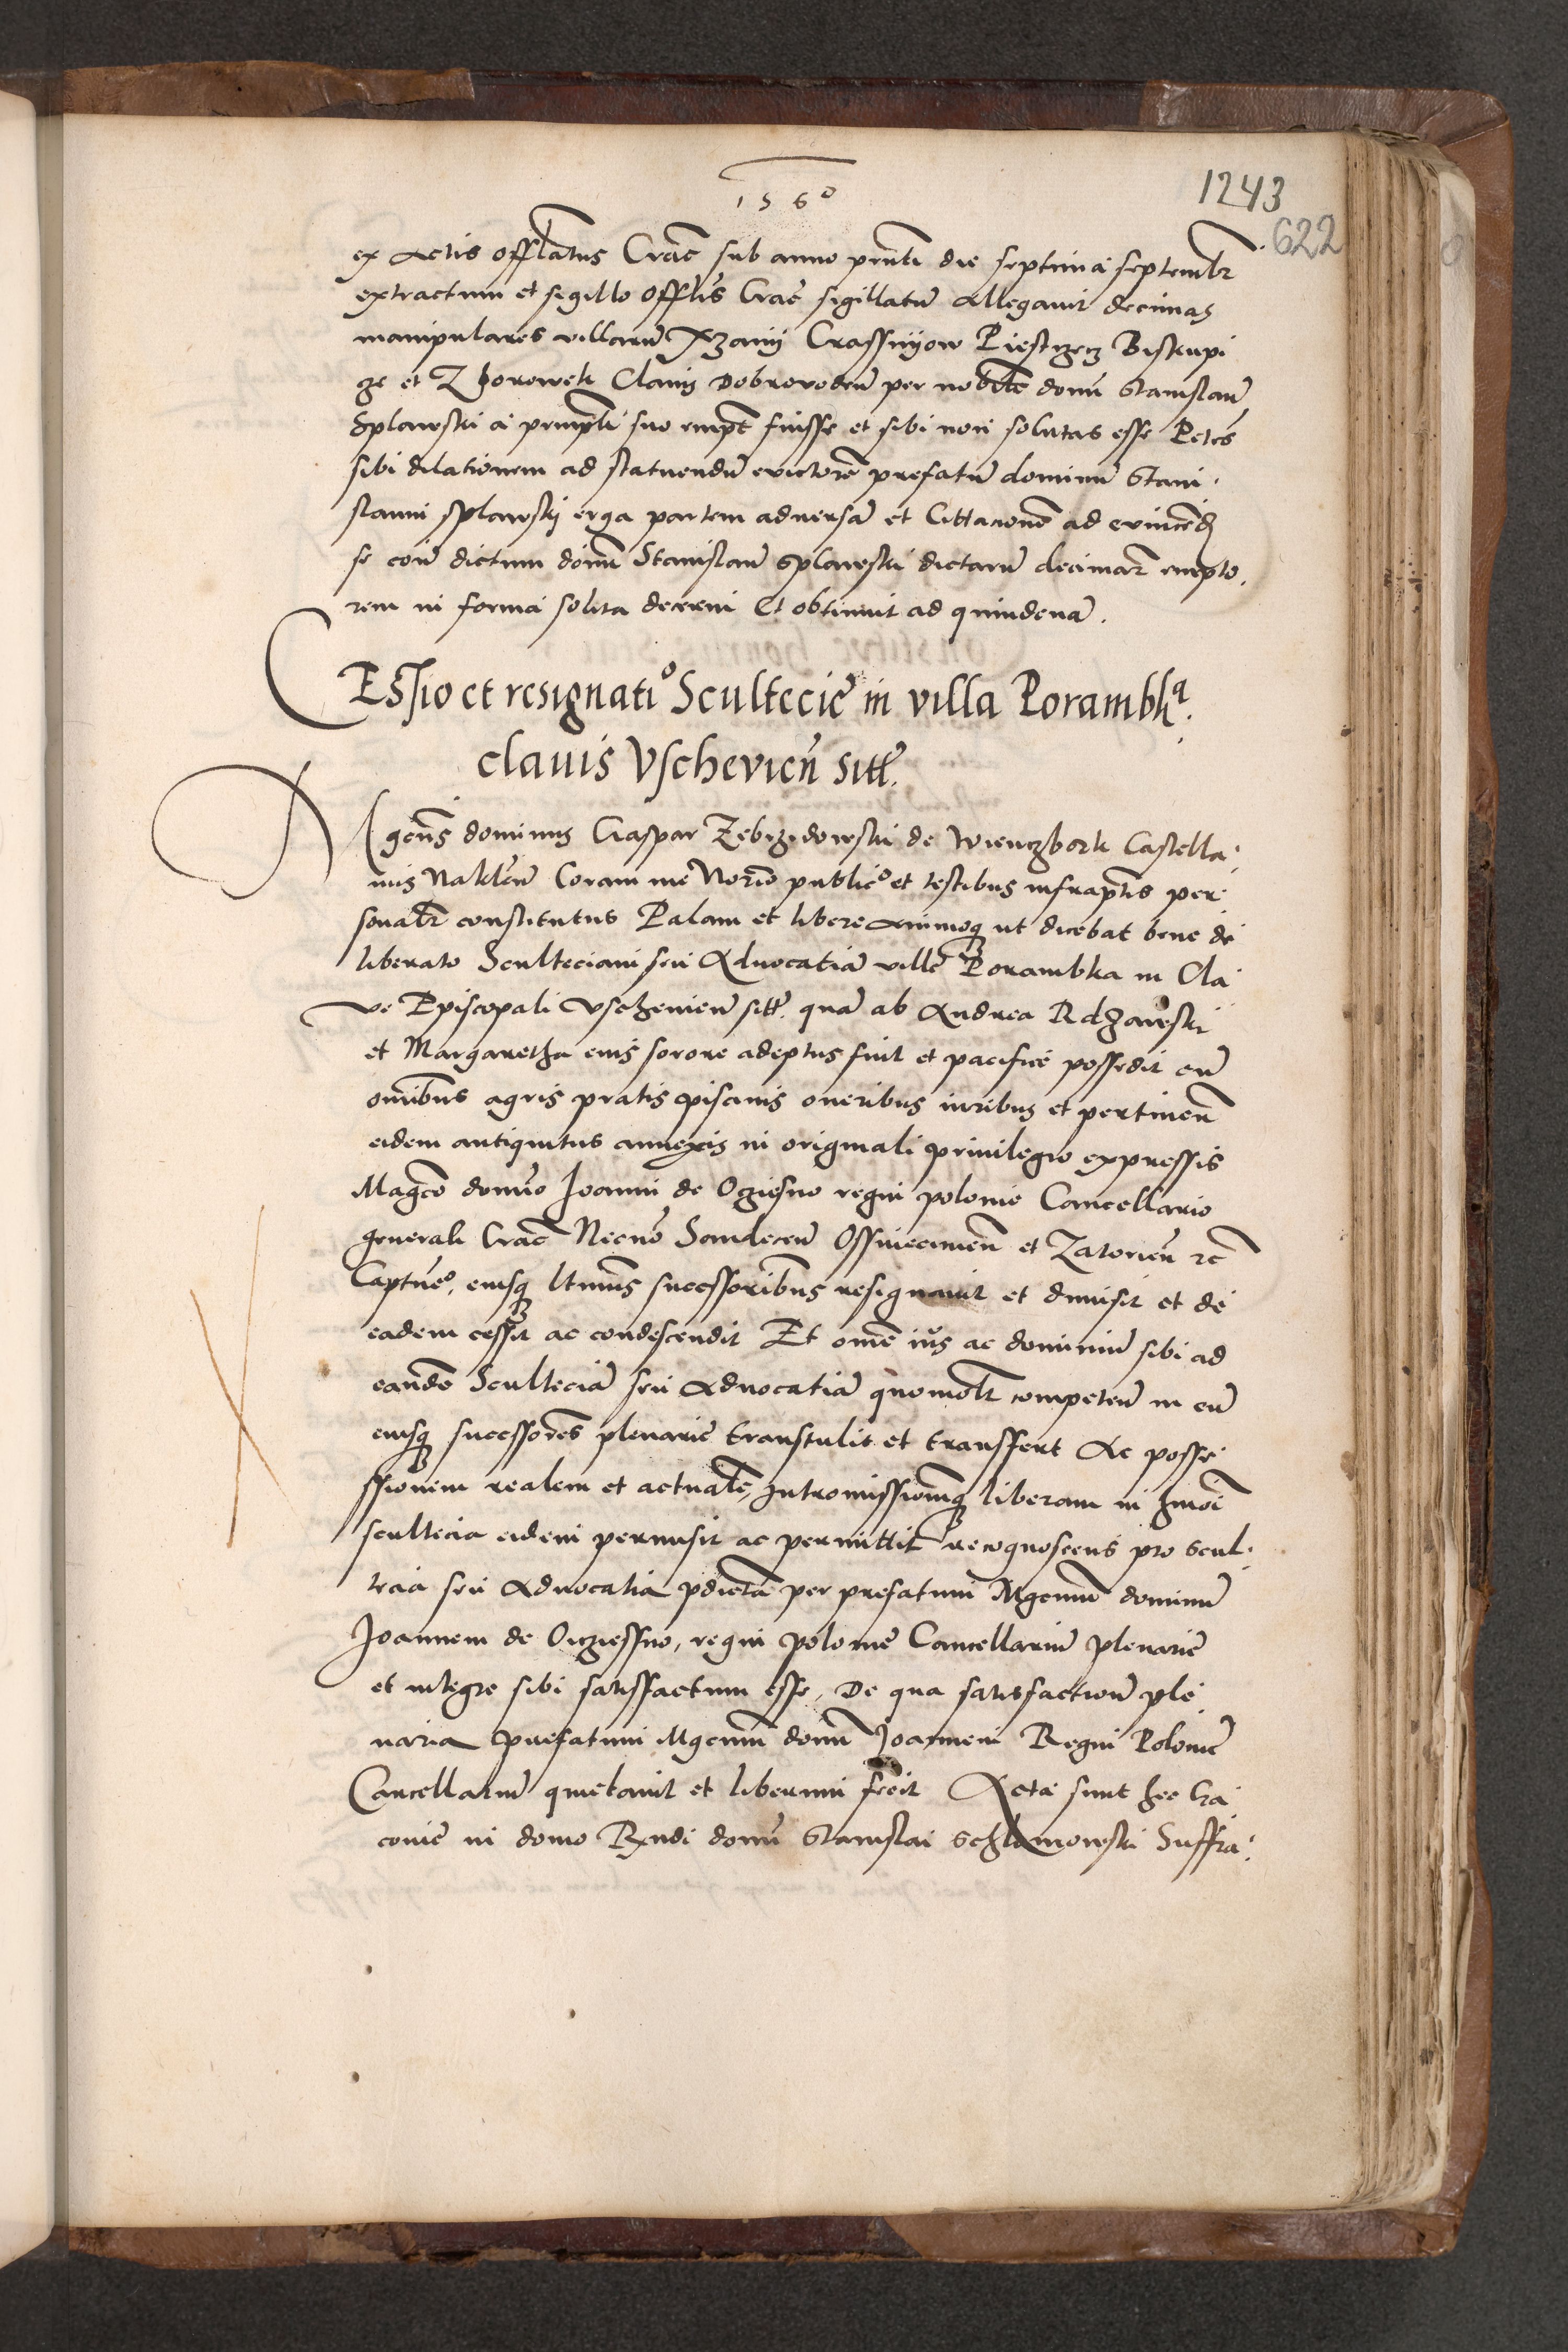 1560
1243
622
ex Actis Offlatus Crac sub anno prnti die septima septembr
extractum et sigillo Offlis Crac sigillatu Allegavit decimas
manipulares villaru Xzanij Crassnyow Piestczecz Biskupi
ze et Zborowek Clavis Dobrovoden per nobile donu Stanislau
Splawski a prinpli suo empt fuisse et sibi non solutas esse Petes
sibi dilationem ad statuendu evictore prefatu dominu Stani
slaum splawskj erga partem adversa et Cittacione ad evincend
se cor dictum donu Stanislau Splawski dictaru decimar empto
rem in forma solita decerni Et obtinuit ad quindena .
CEssio et resignatio Scultecie in villa Porambka
clavis Vschevicn sitt.
Mgcus dominus Gaspar Zebrzidowski de Wienczbork Castella
nus Naklen Coram me Norio publico et testibus infraptis per
sonalr constitutus Palam et libere animoq ut dicebat bene de
liberato Sculteciam seu Advocatia ville Porambka in Cla
ve Episcopali Vschevicn sitt. qua ab Andrea Rdzawski
et Margaretha eius sorore adeptus fuit et pacifice possedit cu
omibus agris pratis piscinis oneribus iuribus et pertinen
eidem antiquitus annexis in originali privilegio expressis
Magco domno Joanni de Ocziesno regni polonie Cancellario
generali Crac Necno Sandecen Osswiecimen et Zatorien zc
Captneo, eiusq ltimis successoribus resignavit et dimisit et de
eadem cessit ac condescendit Et ome ius ac dominiu sibi ad
eande Sculteciam seu Advocatia quomolt competen in eu
eiusq successores plenarie transtulit et transfert Ac posse
ssionem realem et actuale, Intromissionemq liberam in hmoi
scultecia eidem permisit ac permittit recognoscens pro scul
tecia seu Advocatia pdicta per prefatum Mgcum dominu
Joannem de Oczyessno, regni polonie Cancellariu plenarie
et integre sibi satisfactum esse, De qua satisfaction ple
naria prefatum Mgcum donu Joannem Regni Polonie
Cancellariu quietavit et liberum fecit Acta sunt hec Cra
covie in domo Rxndi donu Stanislai Schlomowski Suffra